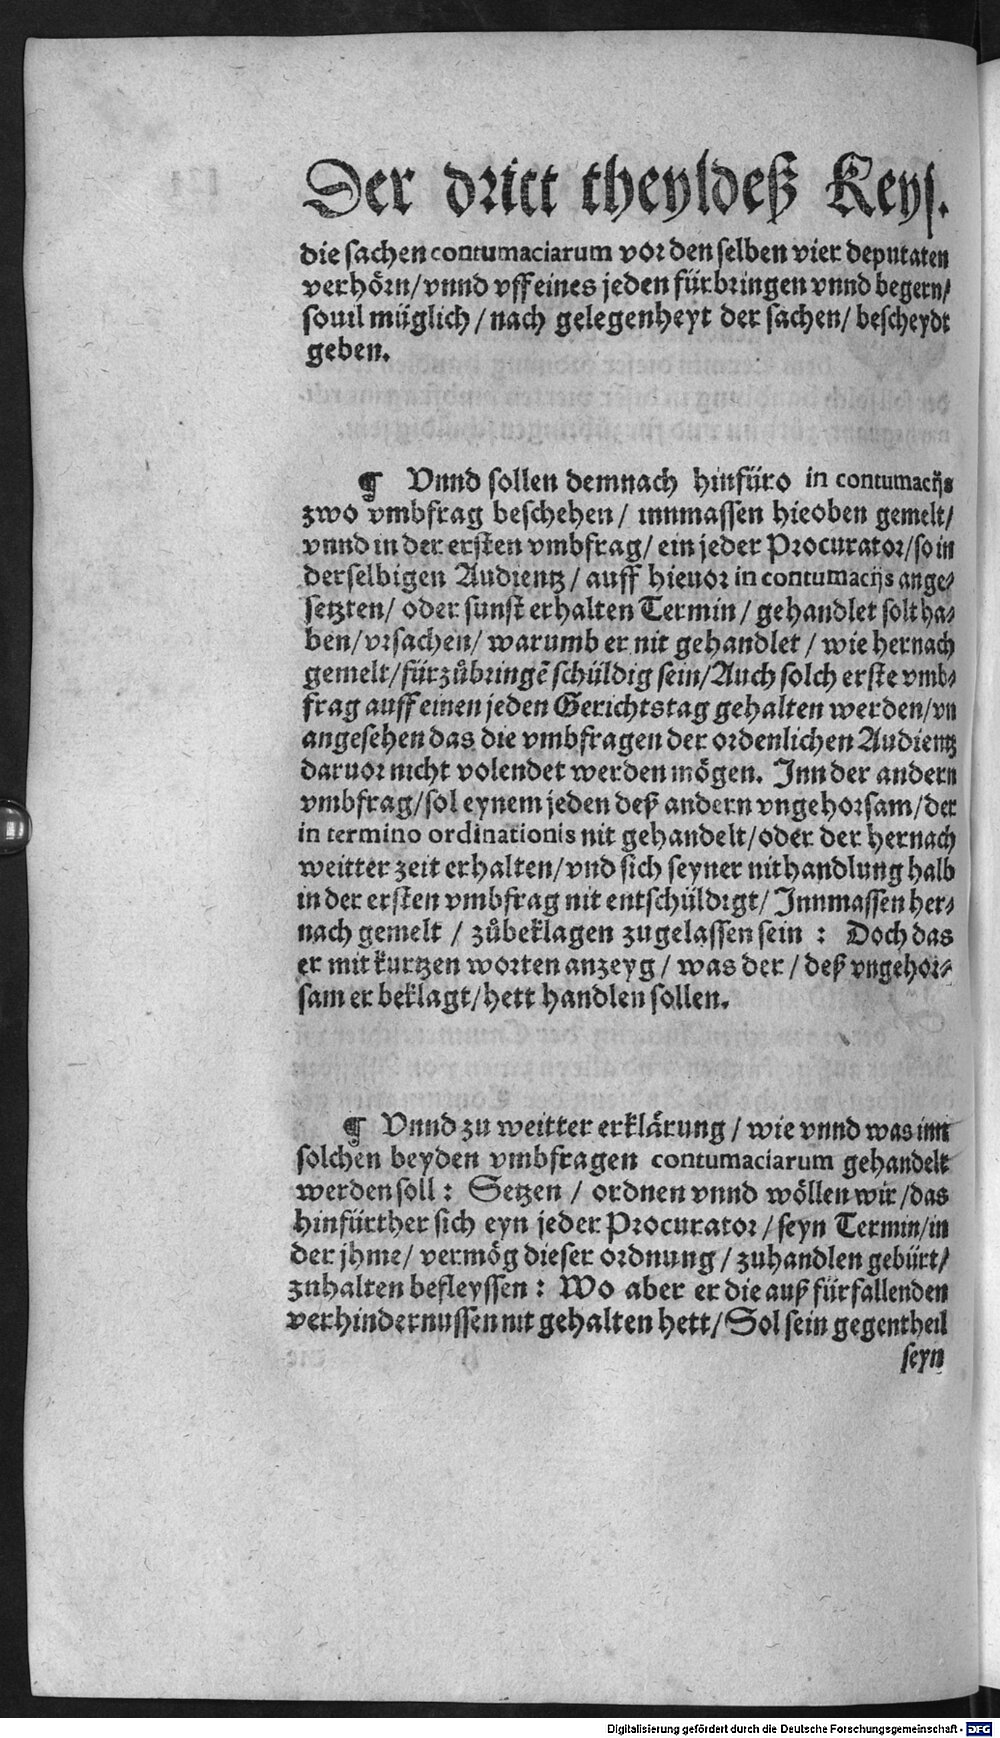 Der dritt theyl deß Keys.
die sachen contumaciarum vor den selben vier deputaten
verhörn / vnnd vff eines jeden fürbringen vnnd begern /
souil müglich / nach gelegenheyt der sachen / bescheydt
geben.
¶ Vnnd sollen demnach hinfüro in contumacijs
zwo vmbfrag beschehen / innmassen hieoben gemelt /
vnnd in der ersten vmbfrag / ein jeder Procurator / so in
derselbigen Audientz / auff hieuor in contumacijs ange-
setzten / oder sunst erhalten Termin / gehandlet solt ha-
ben / vrsachen / warumb er nit gehandlet / wie hernach
gemelt / fürzůbringẽ schüldig sein / Auch solch erste vmb-
frag auff einen jeden Gerichtstag gehalten werden / vn
angesehen das die vmbfragen der ordenlichen Audientz
daruor nicht volendet werden mögen. Inn der andern
vmbfrag / sol eynem jeden deß andern vngehorsam / der
in termino ordinationis nit gehandelt / oder der hernach
weitter zeit erhalten / vnd sich seyner nithandlung halb
in der ersten vmbfrag nit entschüldigt / Innmassen her-
nach gemelt / zůbeklagen zugelassen sein : Doch das
er mit kurtzen worten anzeyg / was der / deß vngehor-
sam er beklagt / hett handlen sollen.
¶ Vnnd zu weitter erklärung / wie vnnd was inn
solchen beyden vmbfragen contumaciarum gehandelt
werden soll : Setzen / ordnen vnnd wöllen wir / das
hinfürther sich eyn jeder Procurator / seyn Termin / in
der jhme / vermög dieser ordnung / zuhandlen gebürt /
zuhalten befleyssen : Wo aber er die auß fürfallenden
verhindernussen nit gehalten hett / Sol sein gegentheil
seyn
Digitalisierung gefördert durch die Deutsche Forschungsgemeinschaft - DFG